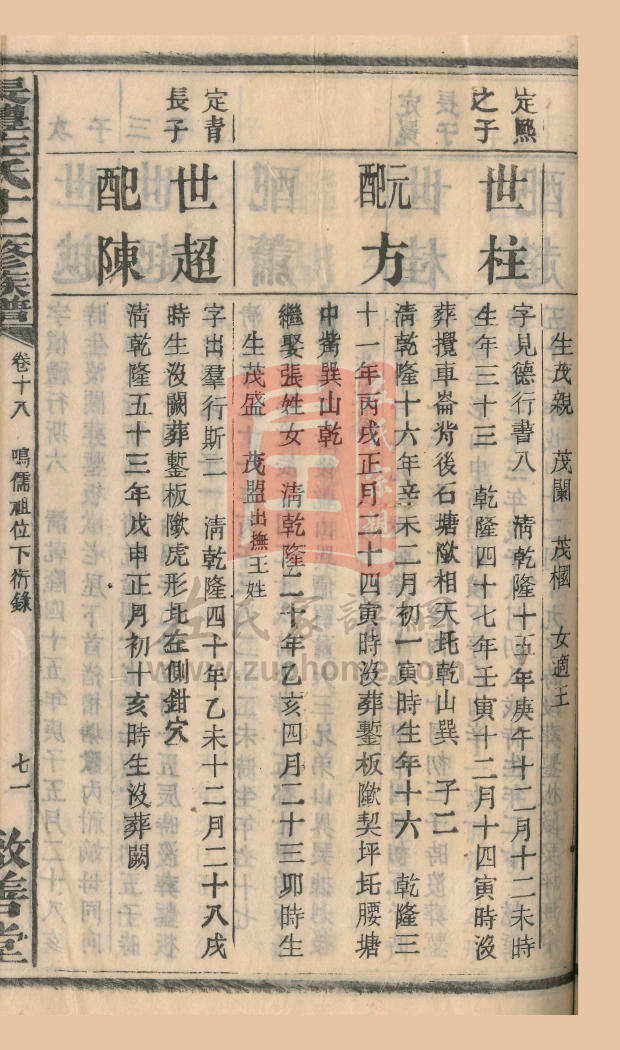 生茂親　茂闌　茂棞　女適王
定熈
之子
世柱
字見德行書八　清乾隆十五年庚午十二月十二未時
生年三十三　乾隆四十七年壬寅十二月十四寅時沒
葬攬車崙背後石塘歘相天托乾山巽　子二
元配方
清乾隆十六年辛未二月初一寅時生年十六　乾隆三
十一年丙戌正月二十四寅時沒葬鏨板歘契坪托腰塘
中嘴巽山乾
繼娶張姓女　清乾隆二十年乙亥四月二十三夘時生
生茂盛　茂盟出撫王姓
定青
長子
世超
字出羣行斯二　清乾隆四十年乙未十二月二十八戌
時生沒闕葬鏨板歘虎形托左側鉗穴
配陳
清乾隆五十三年戊申正月初十亥時生沒葬闕
長豐左氏十二修族譜
卷十八　鳴儒祖位下衍錄
七一
敬善堂
左氏家譜網
www.zuqhome.com